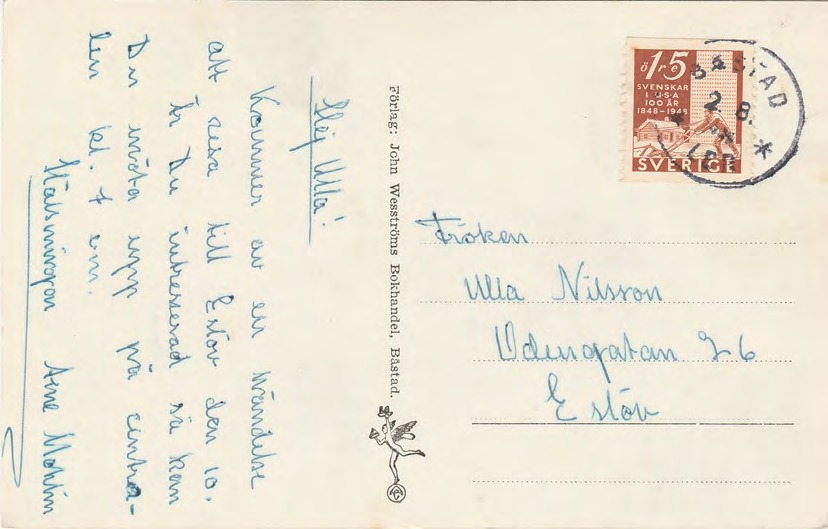 Hej Ulla!
Kommer av en händelse
att resa till Eslöv den 10.
Är Du intresserad så kan
Du möta upp på centra-
len kl. 7 em.
Hälsningar Arne
Förlag: John Wesströms Bokhandel, Båstad.
15
öre
SVENSKAR
I U·S·A
100 ÅR
1848-1948
SVERIGE
BÅSTAD
2 8.
Fröken
Ulla Nilsson
Odengatan 26
Eslöv